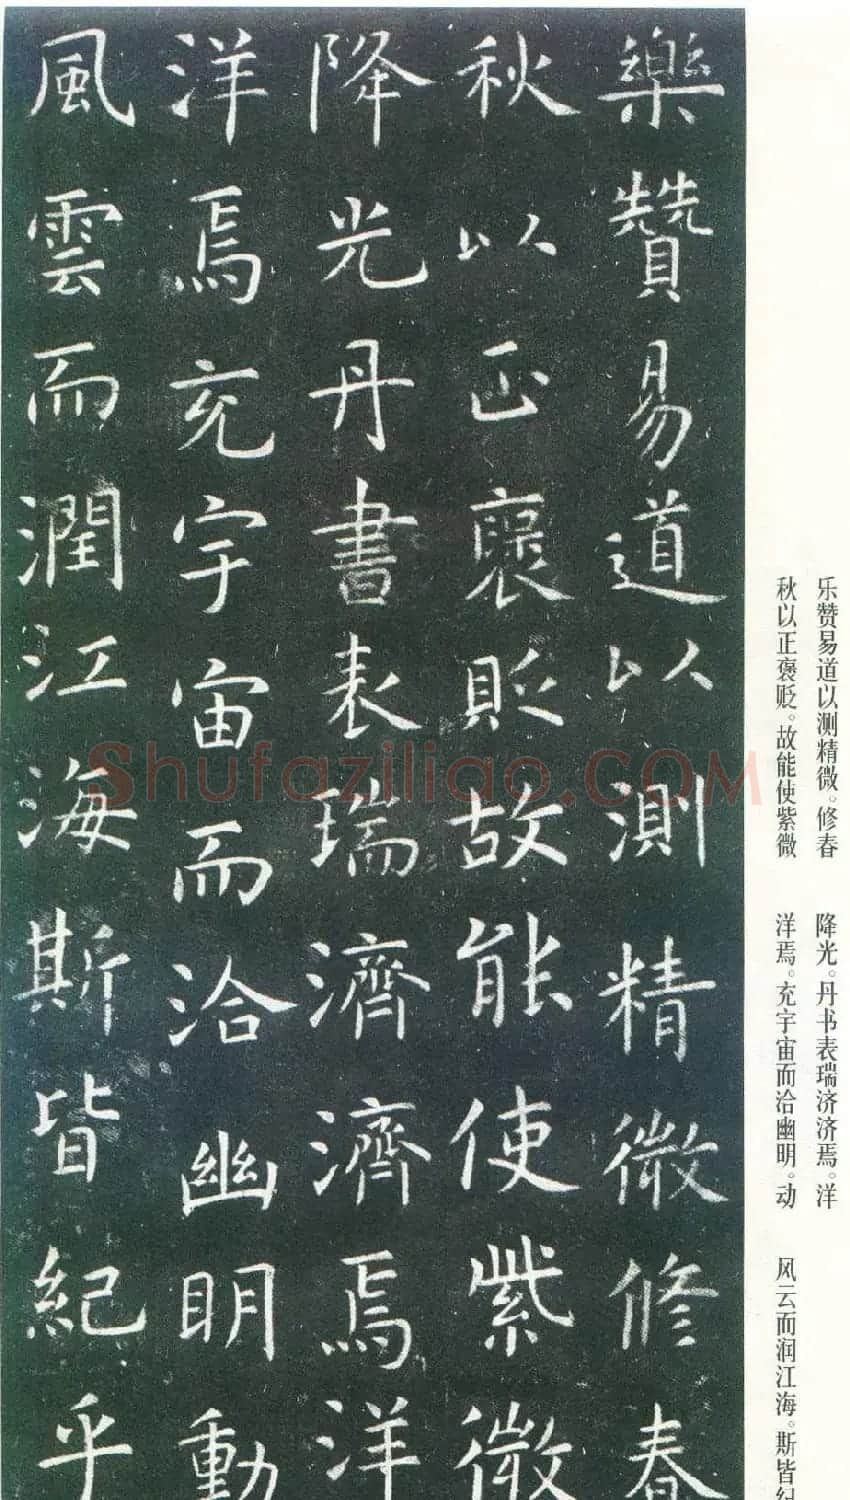 樂贊易道以測精微修春
秋以正褒貶故能使紫微
降光丹書表瑞濟濟焉洋
洋焉充宇宙而洽幽明動
風雲而潤江海斯皆紀乎
乐赞易道以测精微。修春
秋以正褒贬。故能使紫微
降光。丹书表瑞济济焉。洋
洋焉。充宇宙而洽幽明。动
风云而润江海。斯皆纪
Shufaziliao.COM